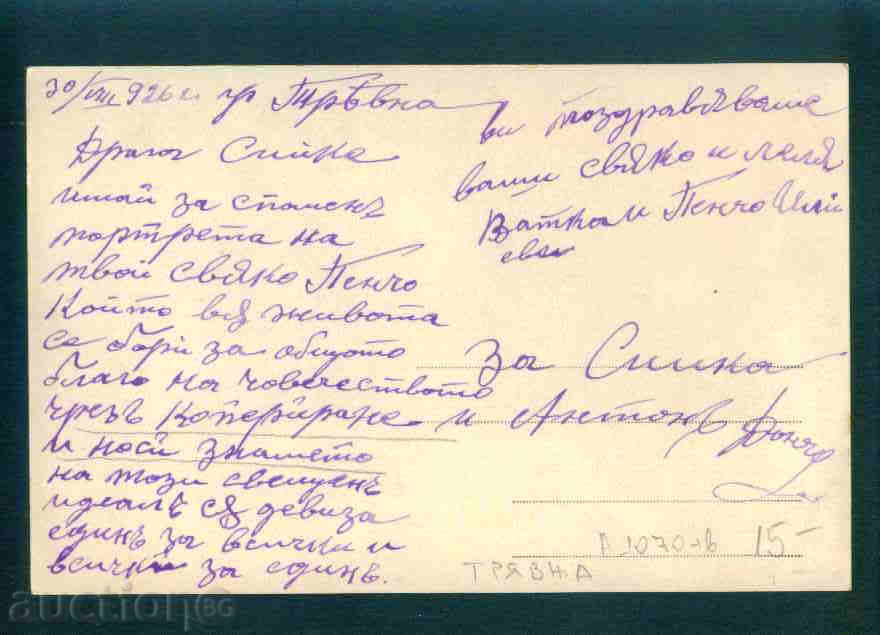 30/VIII 926 г. гр Трѣвна
Драга Сийка
имай за споменъ
портрета на
твой свяко Пенчо
Който въ живота
се бори за общото
благо на човечеството
чрезъ Копериране
и носи знамето
на този свещенъ
идеалъ съ девиза
единъ за всички и
всички за единъ.
ви поздравяваме
ваши свяко и леля
Ватка и Пенчо Или
еви
За Сийка
и Антонъ
Р 1070-в 15-
ТРЯВНА
auction.bg